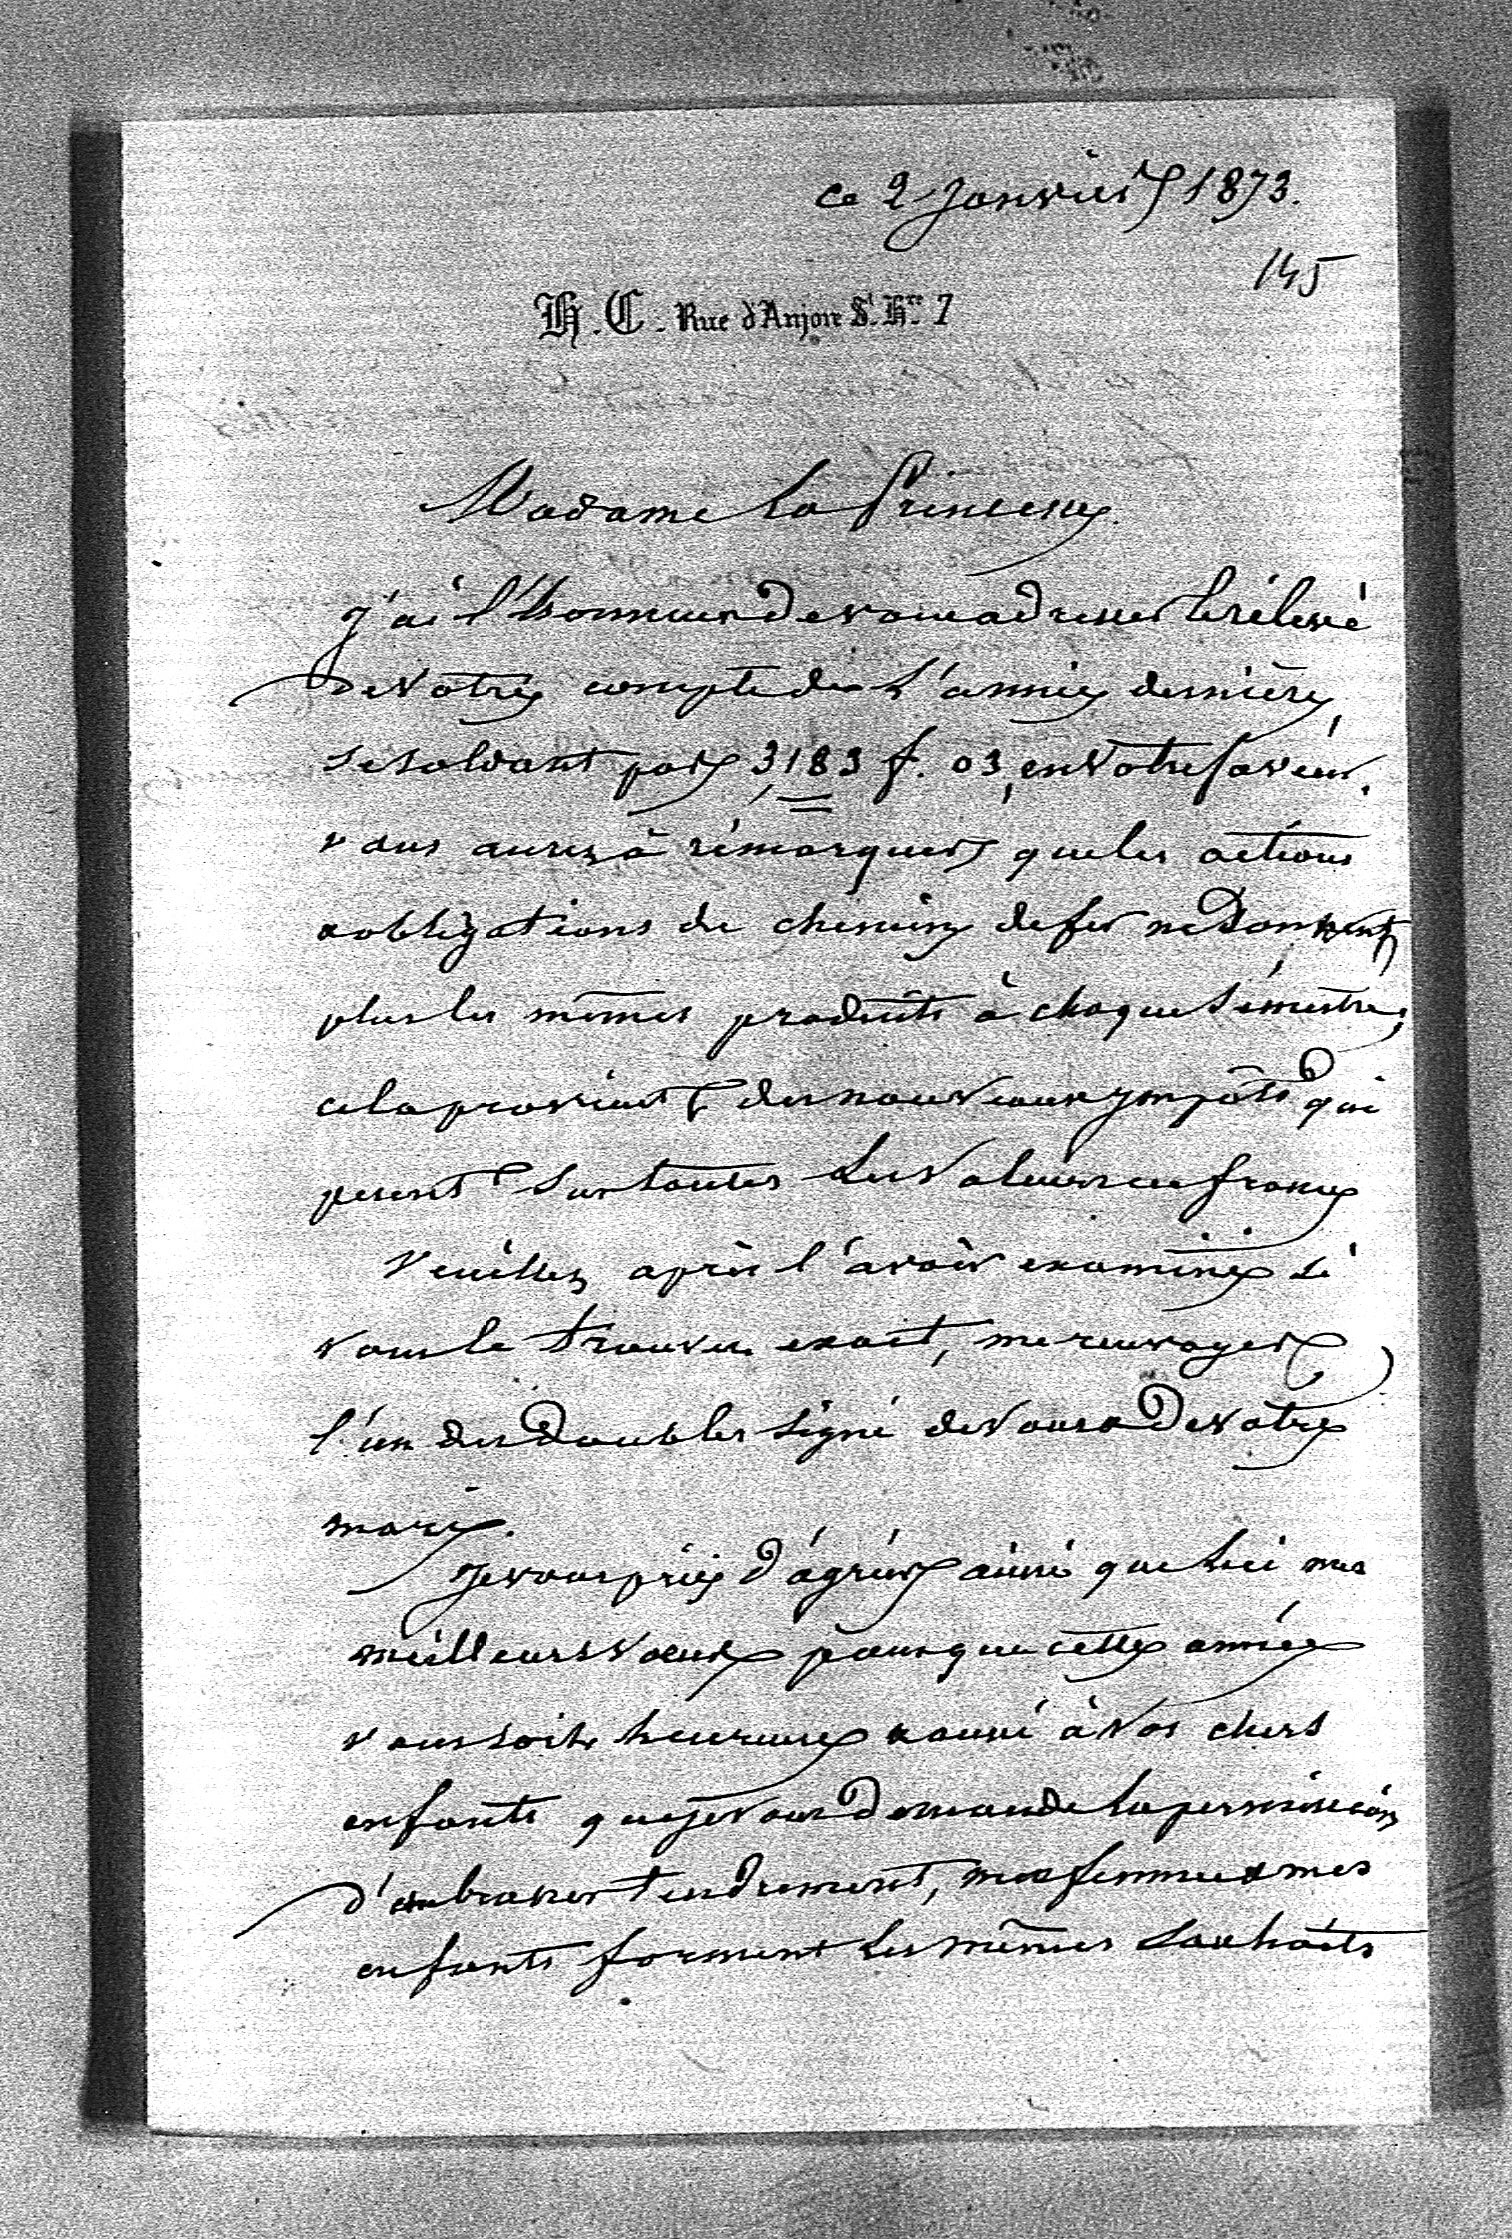 ce 2 Janvier 1873.
145
H. C. Rue d'Anjou St. Hre. 7
Madame la Princesse
J'ai l'honneur de vous adresser le rélevé
de votre compte de l'année dernière,
se soldant par 3,183 f. 03, en votre faveur.
vous aurez à rémarquer que les actions
& obligations de chemin de fer ne donnent
plus les mêmes produits à chaque sémestre;
cela provient des nouveaux impôts qui
pesent sur toutes les valeurs en france
Veuillez après l'avoir examiné si
vous le trouvez exact, me renvoyer
l'un des doubles signé de vous & de votre
mari.
Je vous prie d'agréer ainsi que lui mes
meilleurs vœux pour que cette année
vous soit heureuse & aussi à vos chers
enfants que je vous demande la permission
d'embrasser tendrement, ma femme & mes
enfants forment les mêmes souhaits